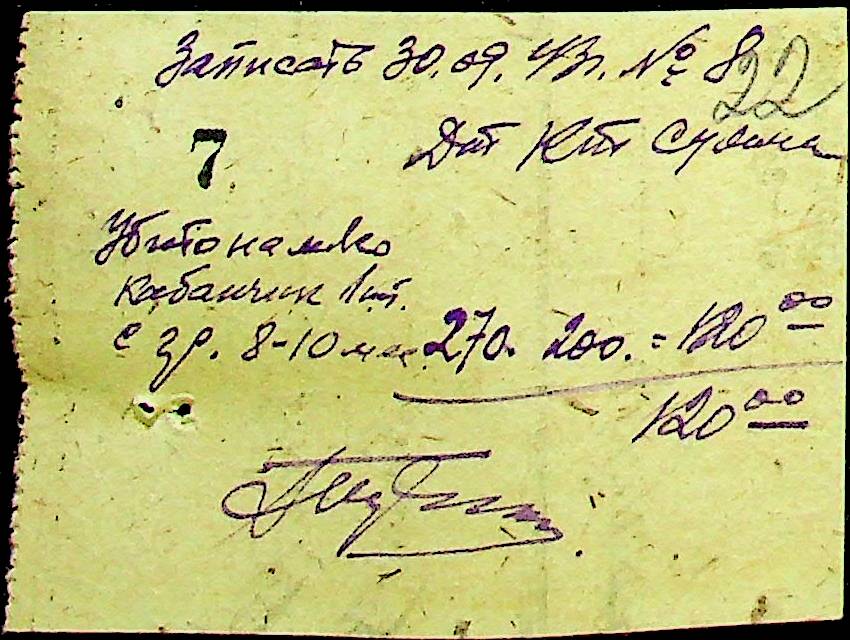 Записать 30.09.43г. № 8
22
7
Дт Кт
Убито на мясо
кабанчик 1 шт.
с гр. 8-10 мес 270. 200. = 120 00
120 00